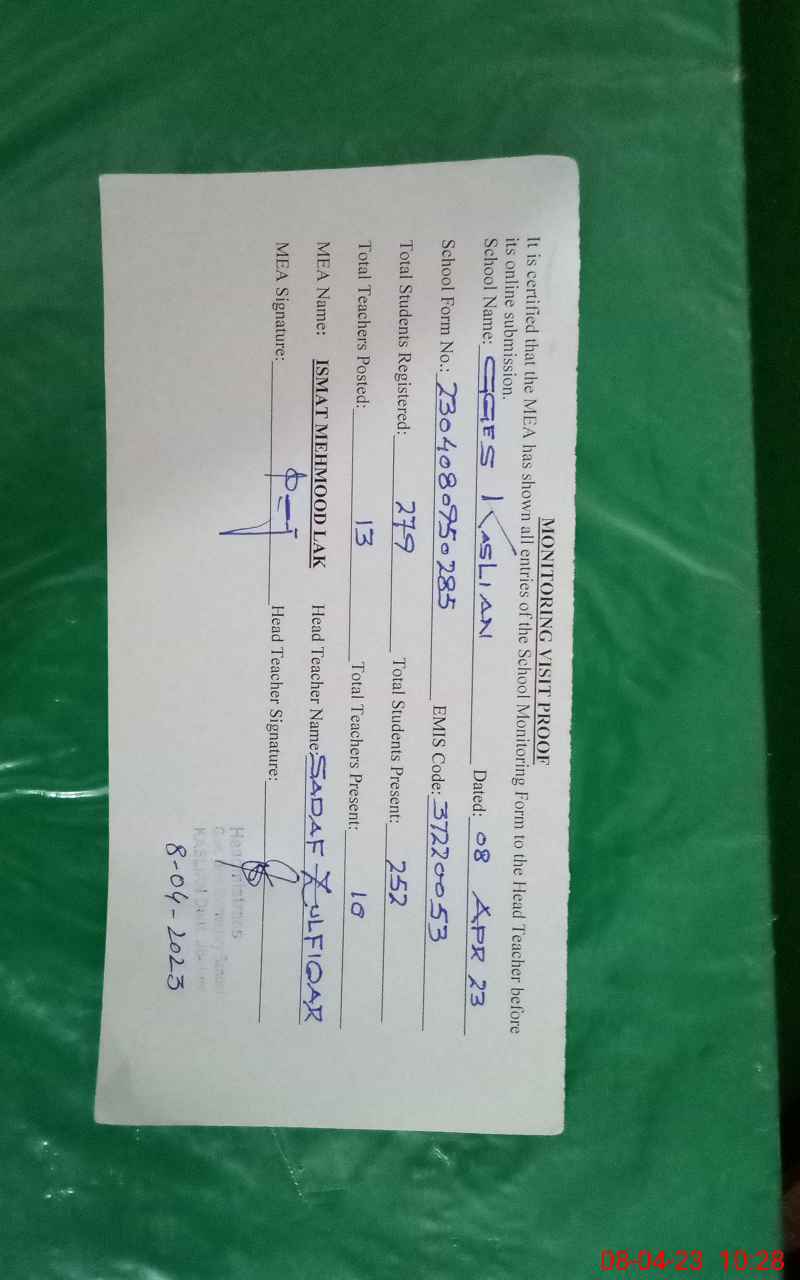 MONITORING VISIT PROOF
It is certified that the MEA has shown all entries of the School Monitoring Form to the Head Teacher before
its online submission.
School Name: GGES KASLIAN Dated: 08 APR 23
School Form No.: 2304080950285 EMIS Code: 37220053
Total Students Registered: 279 Total Students Present: 252
Total Teachers Posted: 13 Total Teachers Present: 10
MEA Name: ISMAT MEHMOOD LAK Head Teacher Name: SADAF ZULFIQAR
MEA Signature: Head Teacher Signature:
8-04-2023
08-04-23 10:28